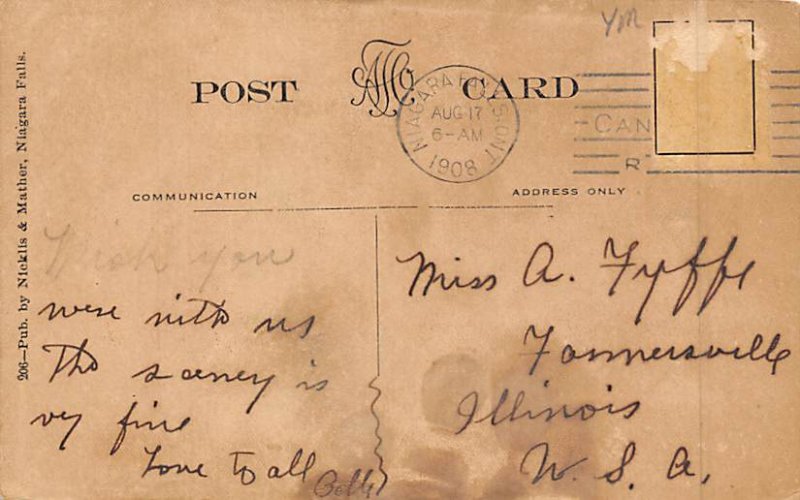 YM
POST CARD
NIAGARA FALLS ONT
AUG 17
6-AM
1908
CAN
R
COMMUNICATION
ADDRESS ONLY
206—Pub. by Nicklis & Mather, Niagara Falls.
Wish you
were with us
The sceney is
vy fine
Love to all
Belle
Miss A. Fyffe
Farmersville
Illinois
U. S. A.